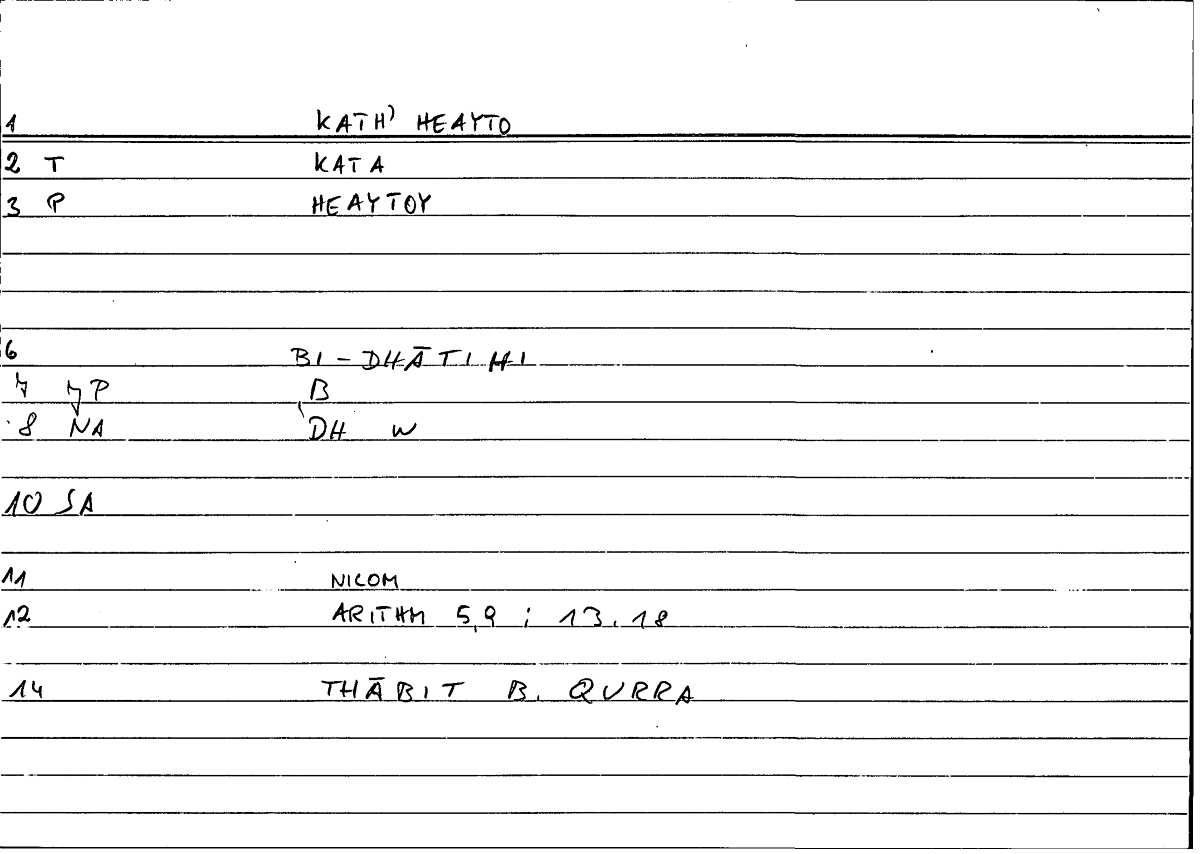 1 KATH' HEAYTO
2 T KATA
3 P HEAYTOY
6 BI-DHĀTIHI
7 P B
8 NA DH W
10 SA
11 NICOM
12 ARITHM 5,9 ; 13.18
14 THĀBIT B. QURRA